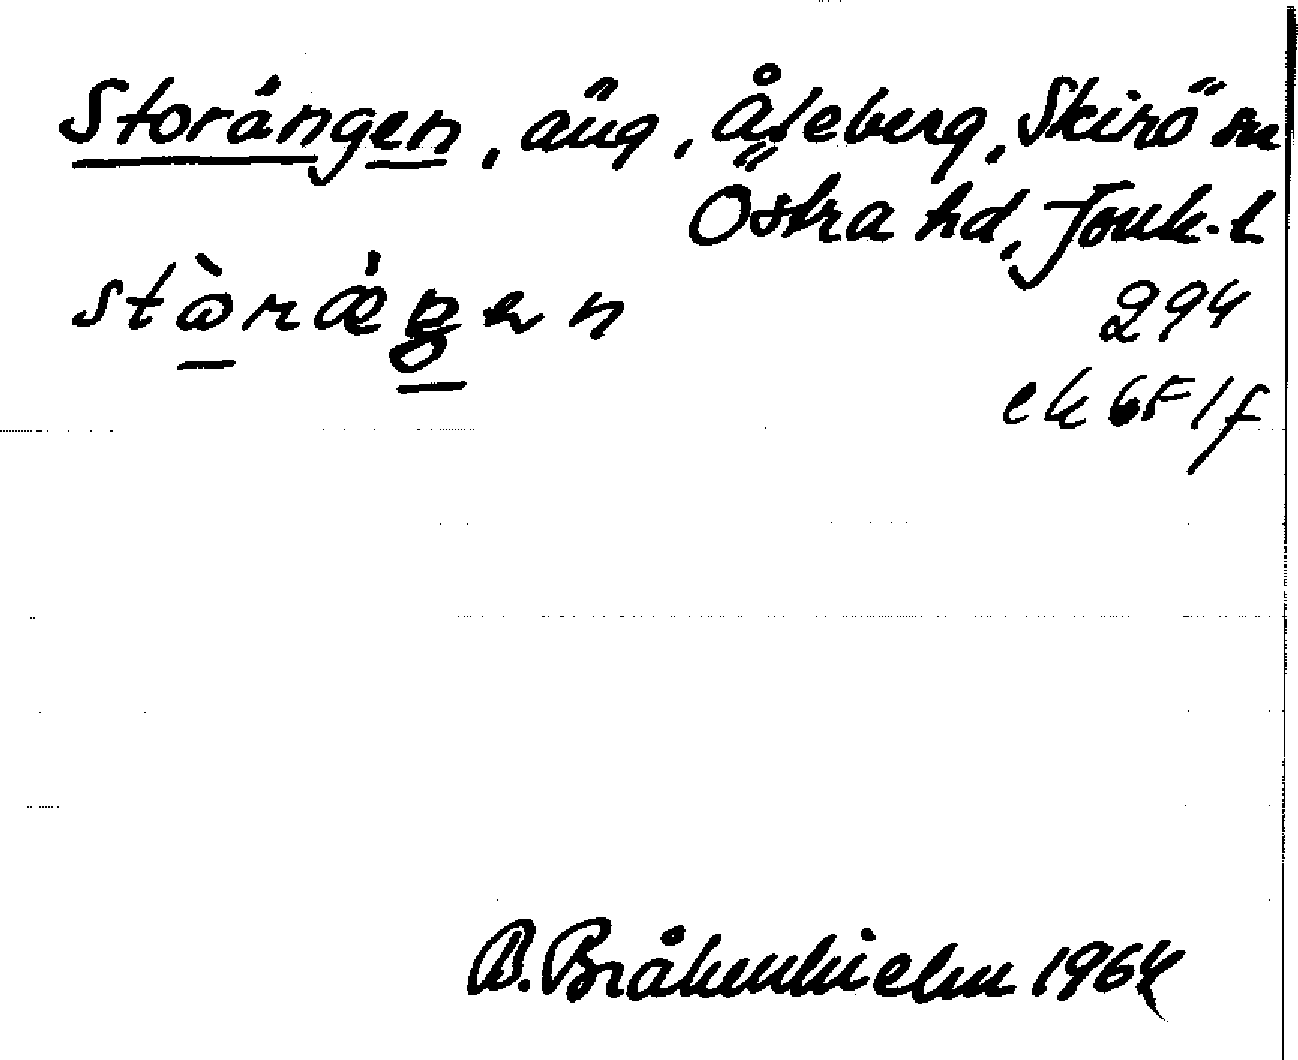 Storängen, äng, Åseberg, Skirö sn
Östra hd, Jönk. l
stò̱rǽŋen
294
ek 6F 1f
B. Bråkenhielm 1964